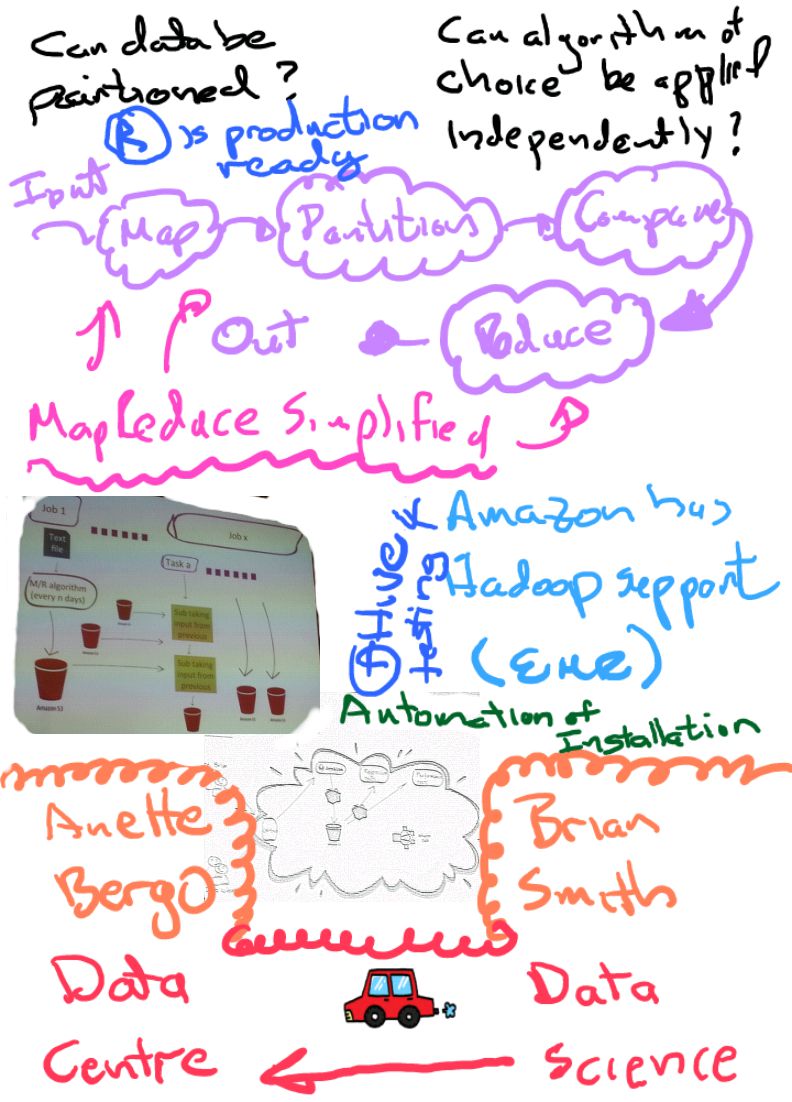 Can data be
partioned?
Can algorithm of
choice be applied
independently?
R is production
ready
Input
Map
Partitions
Compare
Reduce
Out
MapReduce Simplified
Job 1
Job x
Text
file
Task a
M/R algorithm
(every n days)
Sub taking
input from
previous
Sub taking
input from
previous
Amazon S3
Hive
testing
Amazon has
Hadoop support
(EMR)
Automation of
Installation
Anette
Bergo
Brian
Smith
Data
Centre
Data
Science